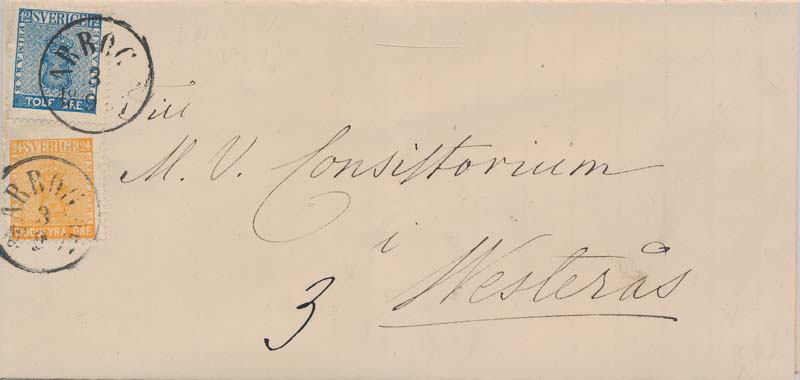 12 SVERIGE 12
TOLF ÖRE
ARBOGA
3
24 SVERIGE 24
TJUGUFYRA ÖRE
ARBOGA
3
Till
M. V. Consistorium
i
Westerås
3